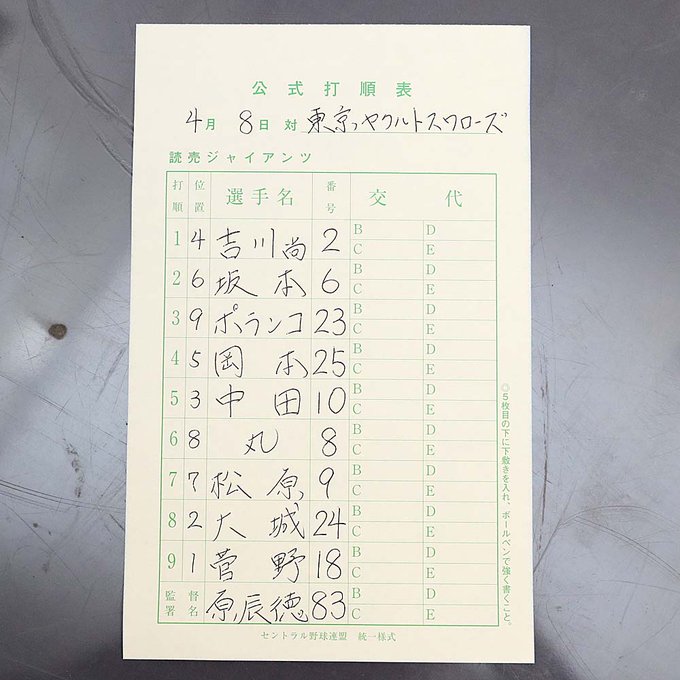 公式打順表
4月 8日 対 東京ヤクルトスワローズ
読売ジャイアンツ
打順 位置 選手名 番号 交代
1 4 吉川尚 2 B D C E
2 6 坂本 6 B D C E
3 9 ポランコ 23 B D C E
4 5 岡本 25 B D C E
5 3 中田 10 B D C E
6 8 丸 8 B D C E
7 7 松原 9 B D C E
8 2 大城 24 B D C E
9 1 菅野 18 B D C E
監督署名 原辰徳 83 B D C E
セントラル野球連盟 統一様式
◎5枚目の下に下敷きを入れ、ボールペンで強く書くこと。